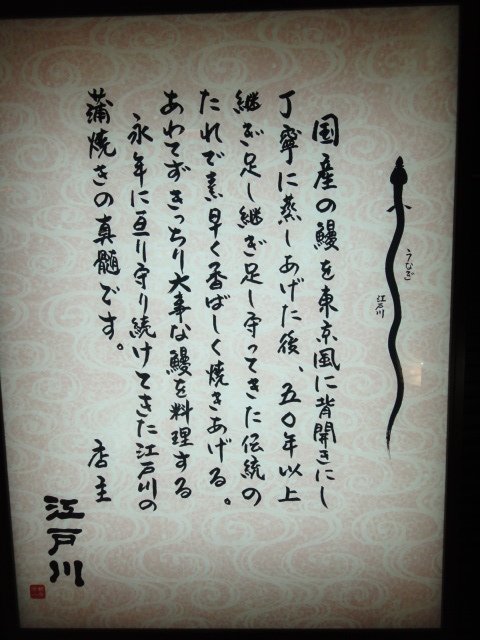 うなぎ
江戸川
国産の鰻を東京風に背開きにし
丁寧に蒸しあげた後、五〇年以上
継ぎ足し継ぎ足し守ってきた伝統の
たれで素早く香ばしく焼きあげる。
あわてずきっちり大事な鰻を料理する
永年に亘り守り続けてきた江戸川の
蒲焼きの真髄です。
店主
江戸川